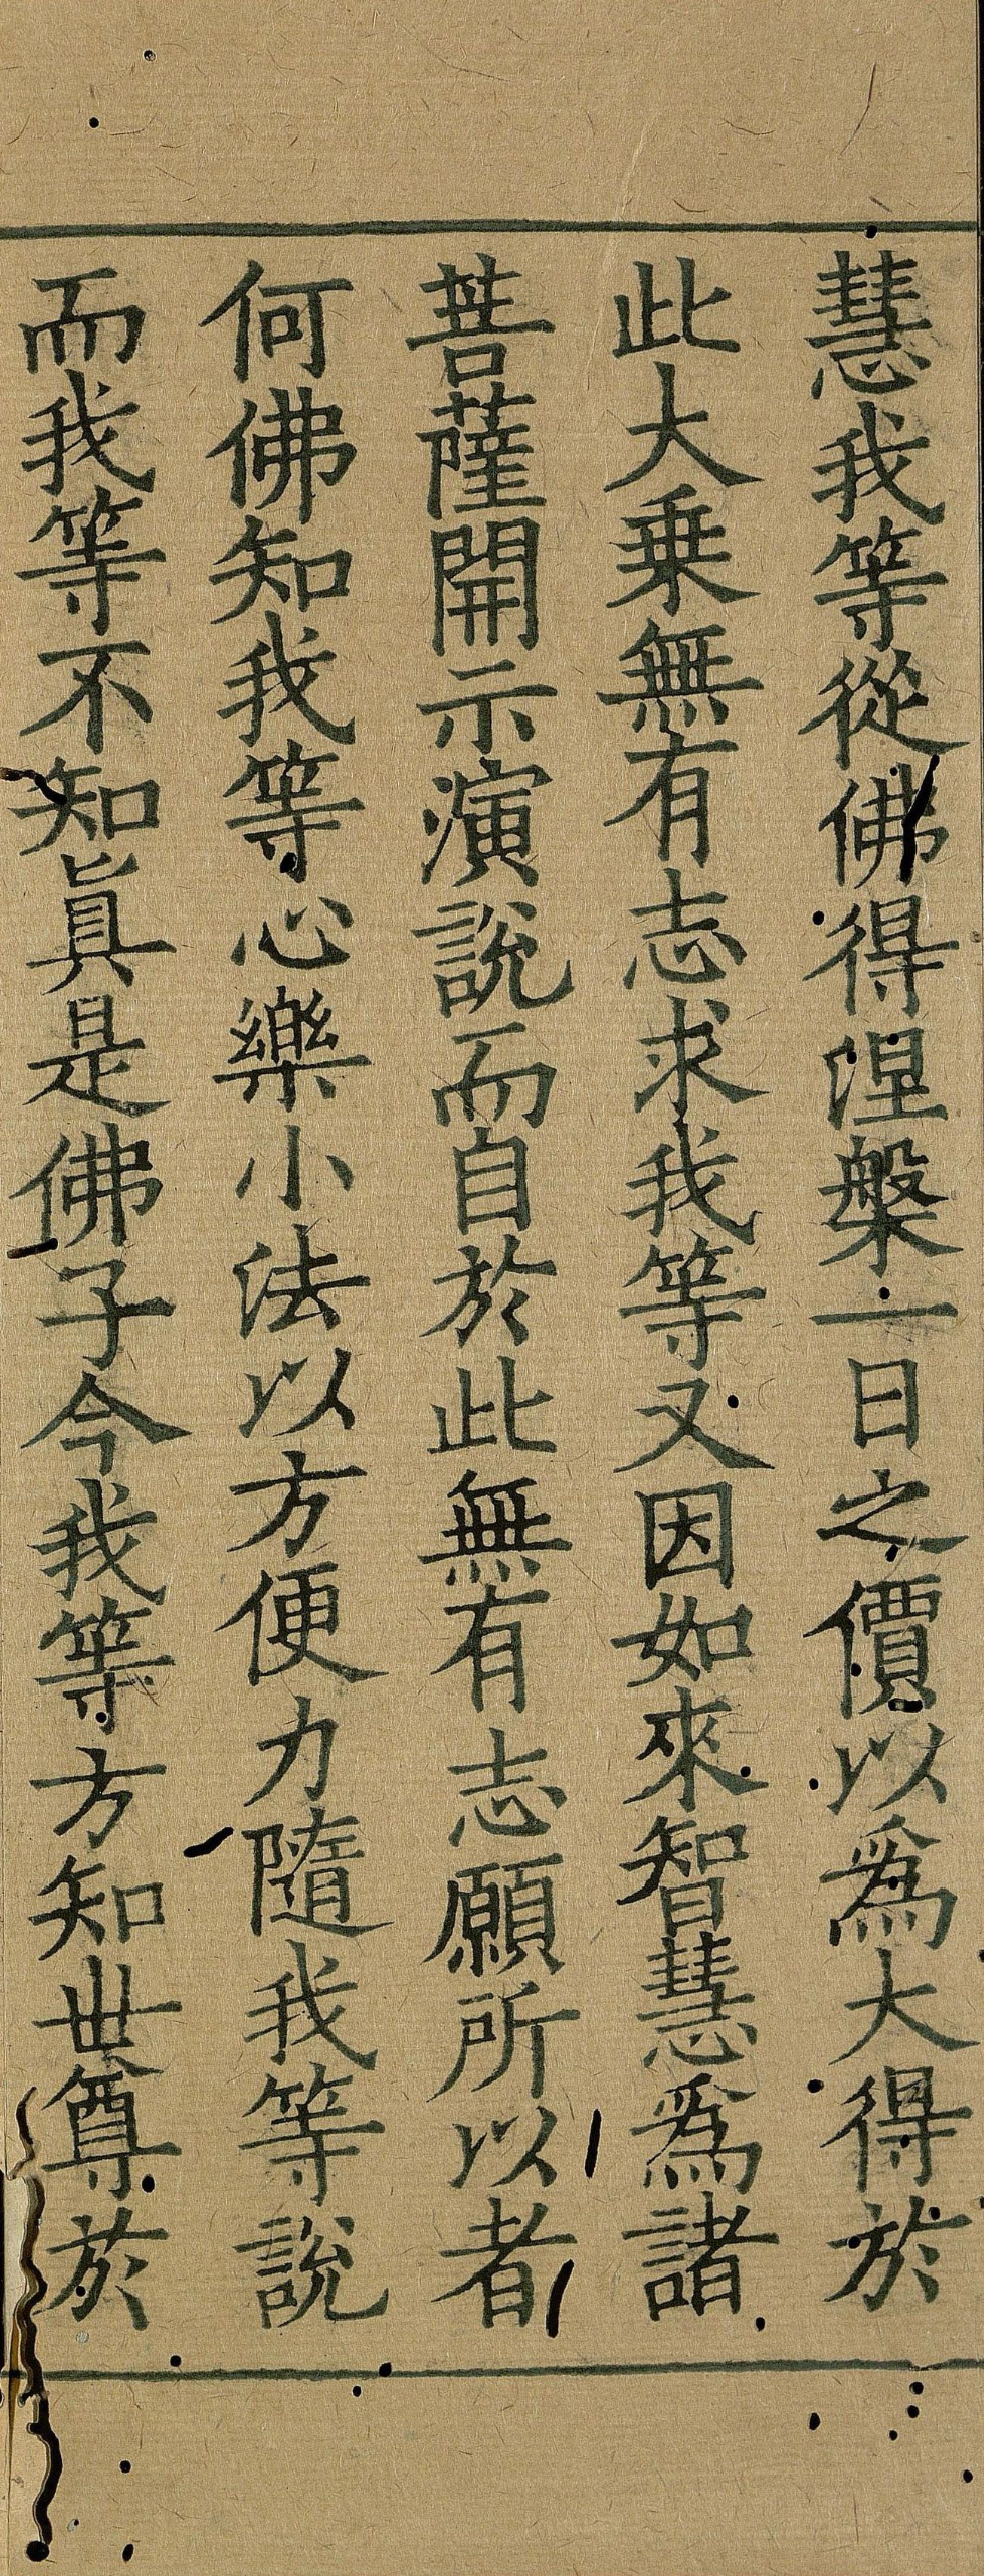 慧我等從佛得涅槃一日之價以爲大得於
此大乗無有志求我等又因如來智慧爲諸
菩薩開示演說而自於此無有志願所以者
何佛知我等心樂小法以方便力隨我等說
而我等不知眞是佛子今我等方知世尊於